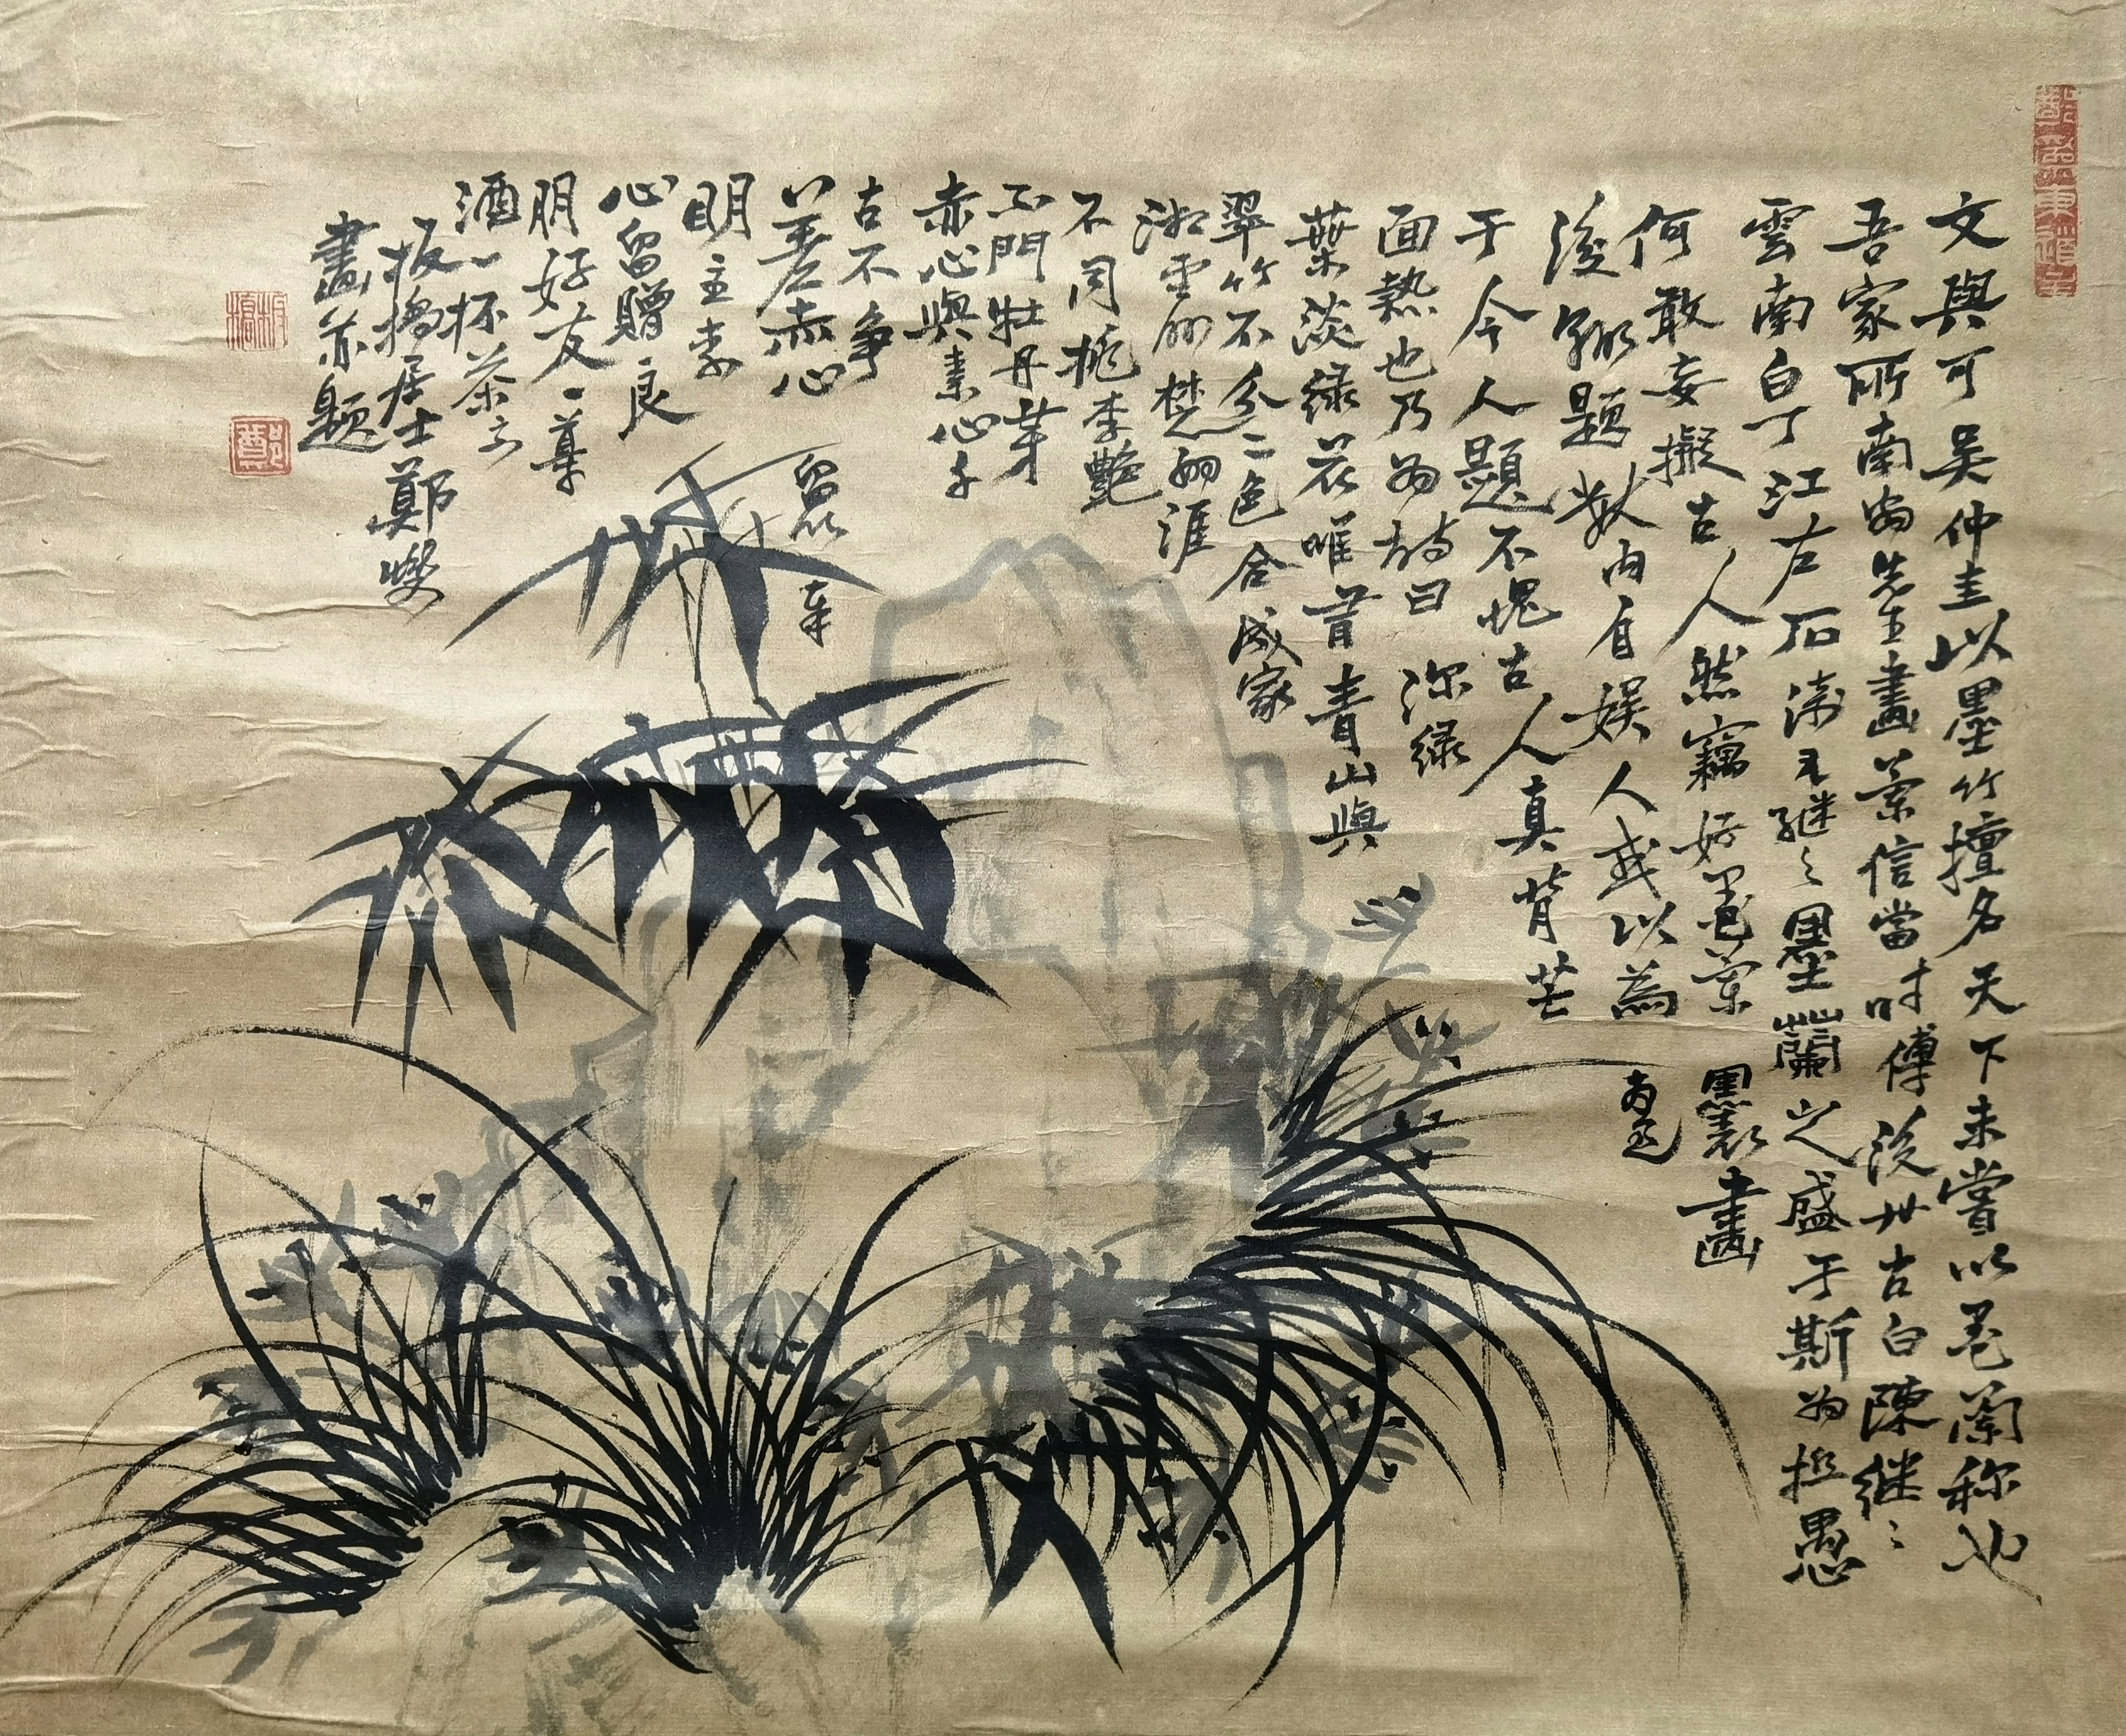 文與可吴仲圭以墨竹擅名天下未嘗以墨蘭称也
吾家所南翁先生畫蘭信當时傳後世古白陳継〻
雲南白丁江左石涛不継〻墨蘭之盛于斯为極愚
何敢妄擬古人然竊好墨蘭畫
後題数内自娱人或以為
于今人題不愧古人真背芒
面熱也乃为詩曰 深緑
葉淡绿花唯昔青山與
翠竹不分二色合成家
湘雲楚雨涯
不同桃李艷
不門牡丹芽
赤心與素心千
古不争
差赤心 留
明主素
心留贈良
朋好友一尊
酒一杯茶
板橋居士鄭燮
畫并題
板橋
鄭